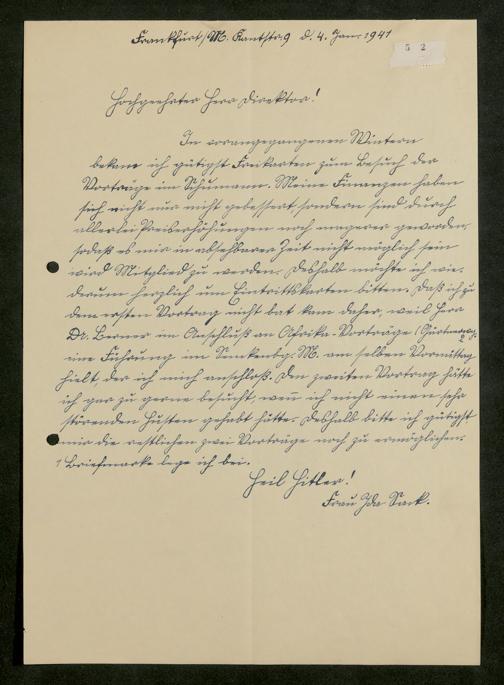 Frankfurt/M. Kantstr. 9 d. 4. Jan. 1941
5 2
Hochgeehrter Herr Direktor!
In vorangegangenen Wintern
bekam ich gütigst Freikarten zum Besuch der
Vorträge im Schumann. Meine Finanzen haben
sich nicht nur nicht gebessert, sondern sind durch
allerlei Preiserhöhungen noch magerer geworden,
sodaß es mir in absehbarer Zeit nicht möglich sein
wird Mitglied zu werden. Deshalb möchte ich wie-
derum herzlich um Eintrittskarten bitten. Daß ich zu
dem ersten Vortrag nicht bat kam daher, weil Herr
Dr. im Anschluß an Afrika-Vorträge
eine Führung im Senckenbg. M. am selben Vormittag
hielt, der ich mich anschloß. Den zweiten Vortrag hätte
ich gar zu gerne besucht, wenn ich nicht einen sehr
störenden Husten gehabt hätte. Deshalb bitte ich gütigst
mir die restlichen zwei Vorträge noch zu ermöglichen.
1 Briefmarke lege ich bei.
Heil Hitler!
Frau Ida Sack.